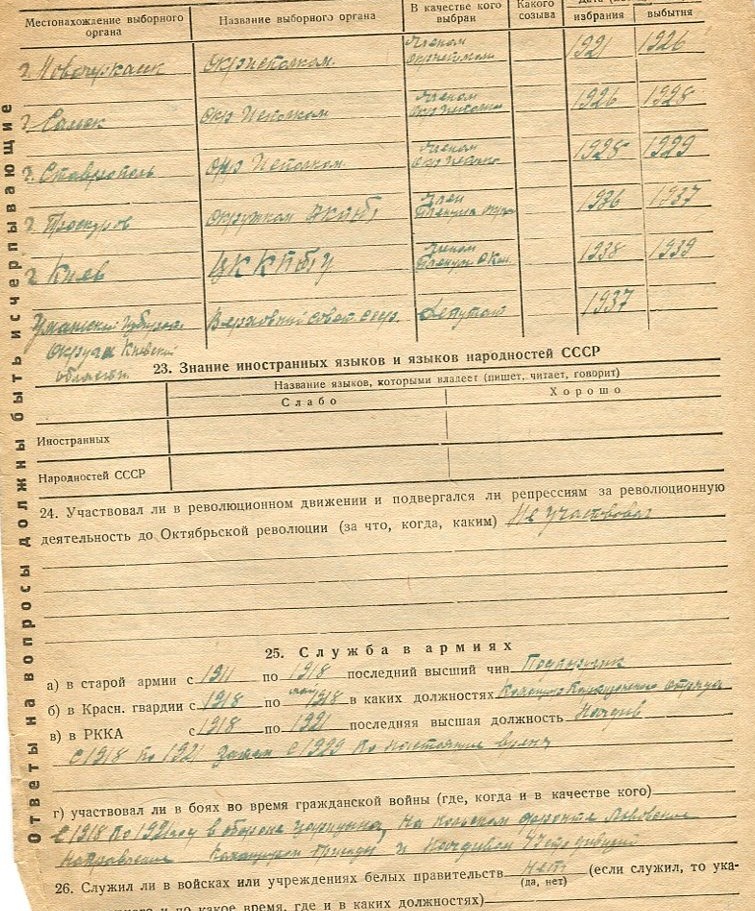 Местонахождение выборного органа
Название выборного органа
В качестве кого выбран
Какого созыва
избрания
выбытия
г. Новочеркасск Окрисполком. Членом 1921 1926
г. Сальск Окр Исполком Членом 1926 1928
г. Ставрополь Окр Исполком. Членом 1928 1929
г. Проскуров Окружком ВКП(б) Член Пленума 1936 1937
г. Киев ЦК КП(б)У Членом Пленума 1938 1939
Уманский Верховный Совет СССР. Депутат 1937
Округа Киевской
Области.
23. Знание иностранных языков и языков народностей СССР
Название языков, которыми владеет (пишет, читает, говорит)
Слабо
Хорошо
Иностранных
Народностей СССР
24. Участвовал ли в революционном движении и подвергался ли репрессиям за революционную
деятельность до Октябрьской революции (за что, когда, каким) Не участвовал
25. Служба в армиях
а) в старой армии с 1911 по 1918 последний высший чин
б) в Красн. гвардии с 1918 по май 1918 в каких должностях Командир отряда
в) в РККА с 1918 по 1921 последняя высшая должность Начдив
С 1918 по 1921 Затем с 1929 по настоящее время
г) участвовал ли в боях во время гражданской войны (где, когда и в качестве кого)
С 1918 по 1921 год в обороне Царицына, на Польском фронте Львовское
направление Командиром бригады и Начдивом дивизии
26. Служил ли в войсках или учреждениях белых правительств нет (если служил, то ука-
(да, нет)
и по какое время, где и в каких должностях)
Ответы на вопросы должны быть исчерпывающие